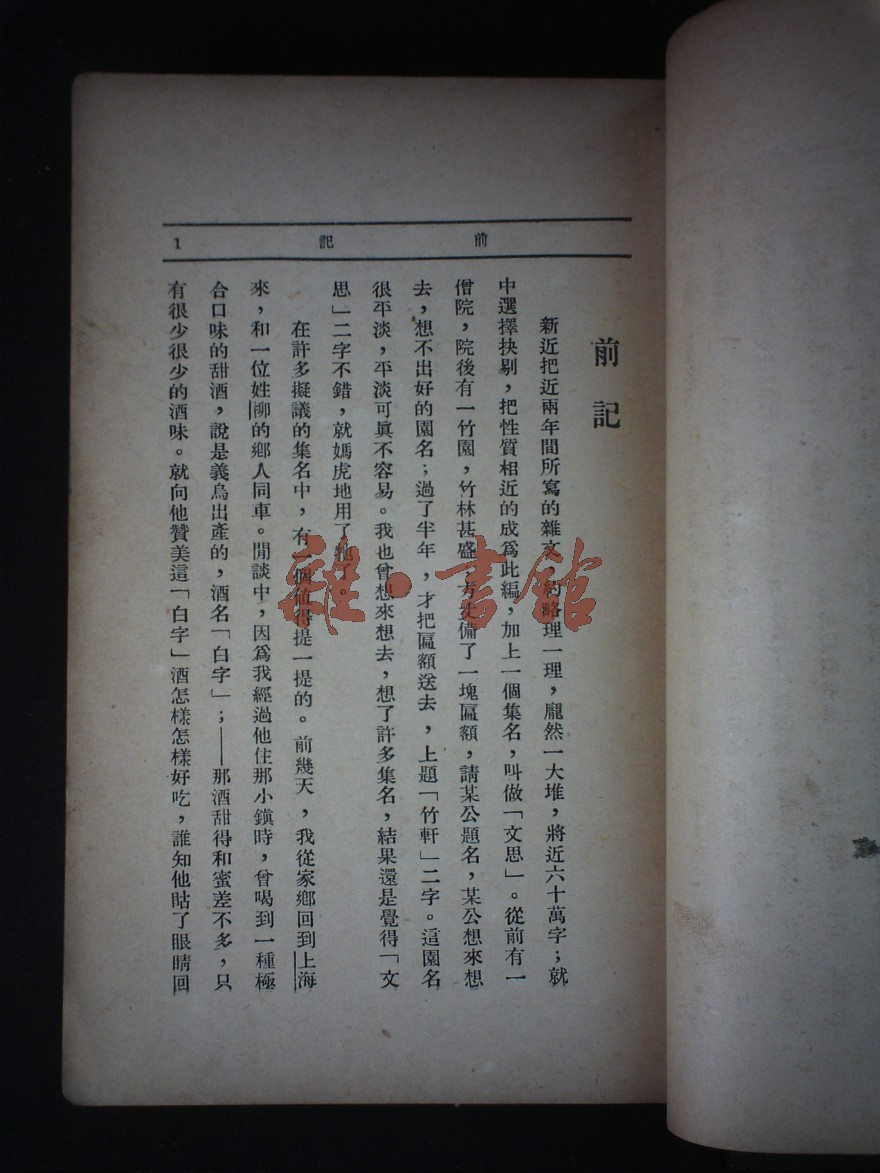 前記 1
前記
新近把近兩年間所寫的雜文,約略理一理,龐然一大堆,將近六十萬字;就
中選擇抉剔,把性質相近的成爲此編,加上一個集名,叫做「文思」。從前有一
僧院,院後有一竹園,竹林甚盛,方丈備了一塊匾額,請某公題名,某公想來想
去,想不出好的園名;過了半年,才把匾額送去,上題「竹軒」二字。這園名
很平淡,平淡可眞不容易。我也曾想來想去,想了許多集名,結果還是覺得「文
思」二字不錯,就媽虎地用了牠了。
在許多擬議的集名中,有一個值得提一提的。前幾天,我從家鄉回到上海
來,和一位姓柳的鄉人同車。閒談中,因爲我經過他住那小鎭時,曾喝到一種極
合口味的甜酒,說是義烏出產的,酒名「白字」;——那酒甜得和蜜差不多,只
有很少很少的酒味。就向他贊美這「白字」酒怎樣怎樣好吃,誰知他眙了眼睛回
雜·書館